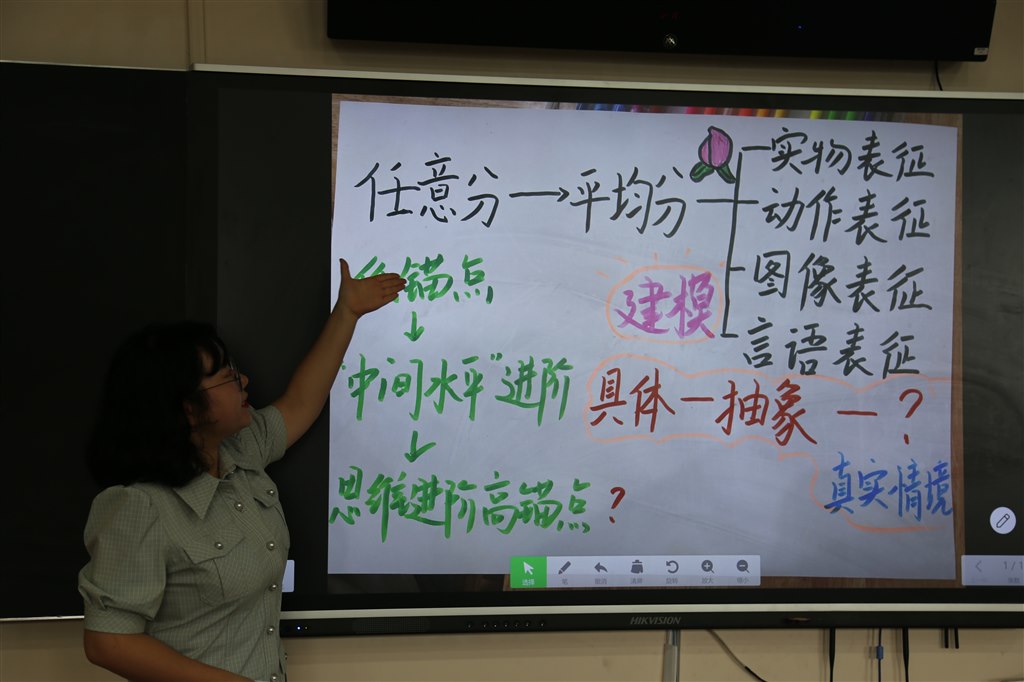 任意分→平均分
实物表征
动作表征
图像表征
言语表征
建模
锚点
↓
"中间水平"进阶
↓
思维进阶高锚点?
具体—抽象—?
真实情境
选择
笔
撤消
清屏
旋转
放大
缩小
1/1
HIKVISION